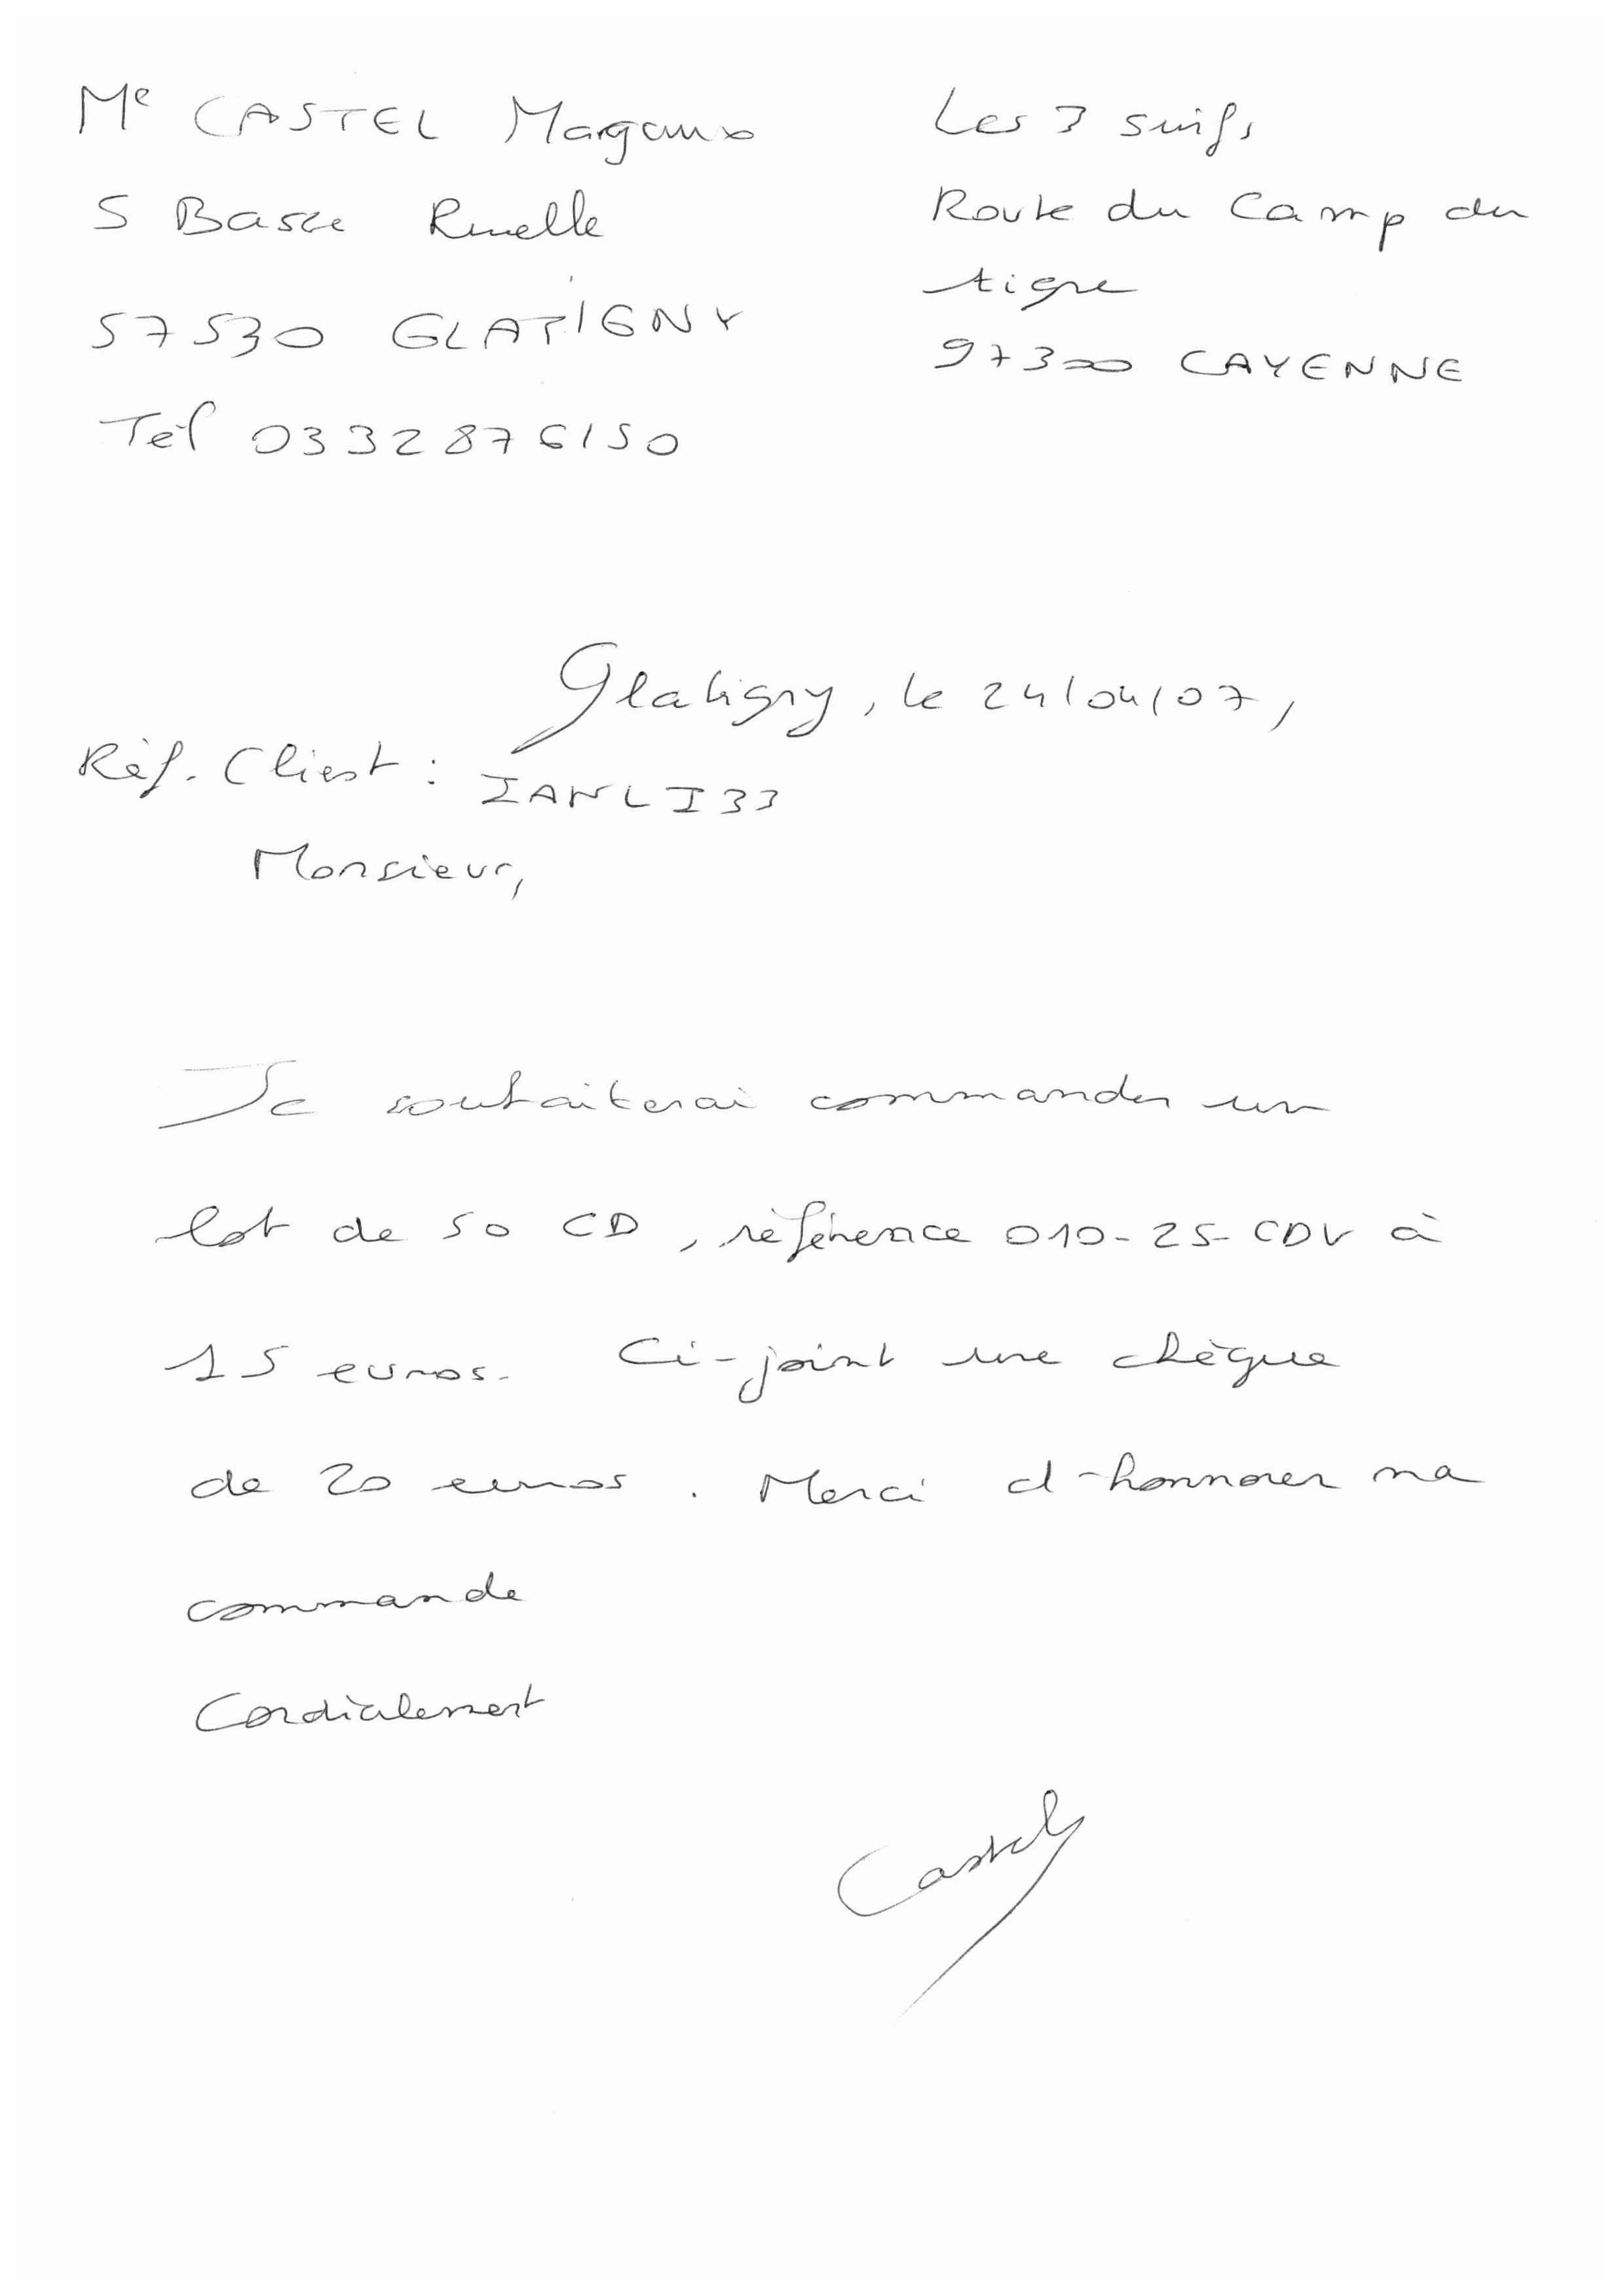 Me CASTEL Margaux
5 Basse Ruelle
57530 GLATIGNY
Tel 0332876150
Les 3 suifs
Route du Camp du
tigre
97300 CAYENNE
Glatigny, le 24/04/07,
Réf. Client : IANLI33
Monsieur,
Je souhaiterai commander un
lot de 50 CD, référence 010-25-CDV à
15 euros. Ci-joint une chèque
de 20 euros. Merci d'honnorer ma
commande
Cordialement
Castel